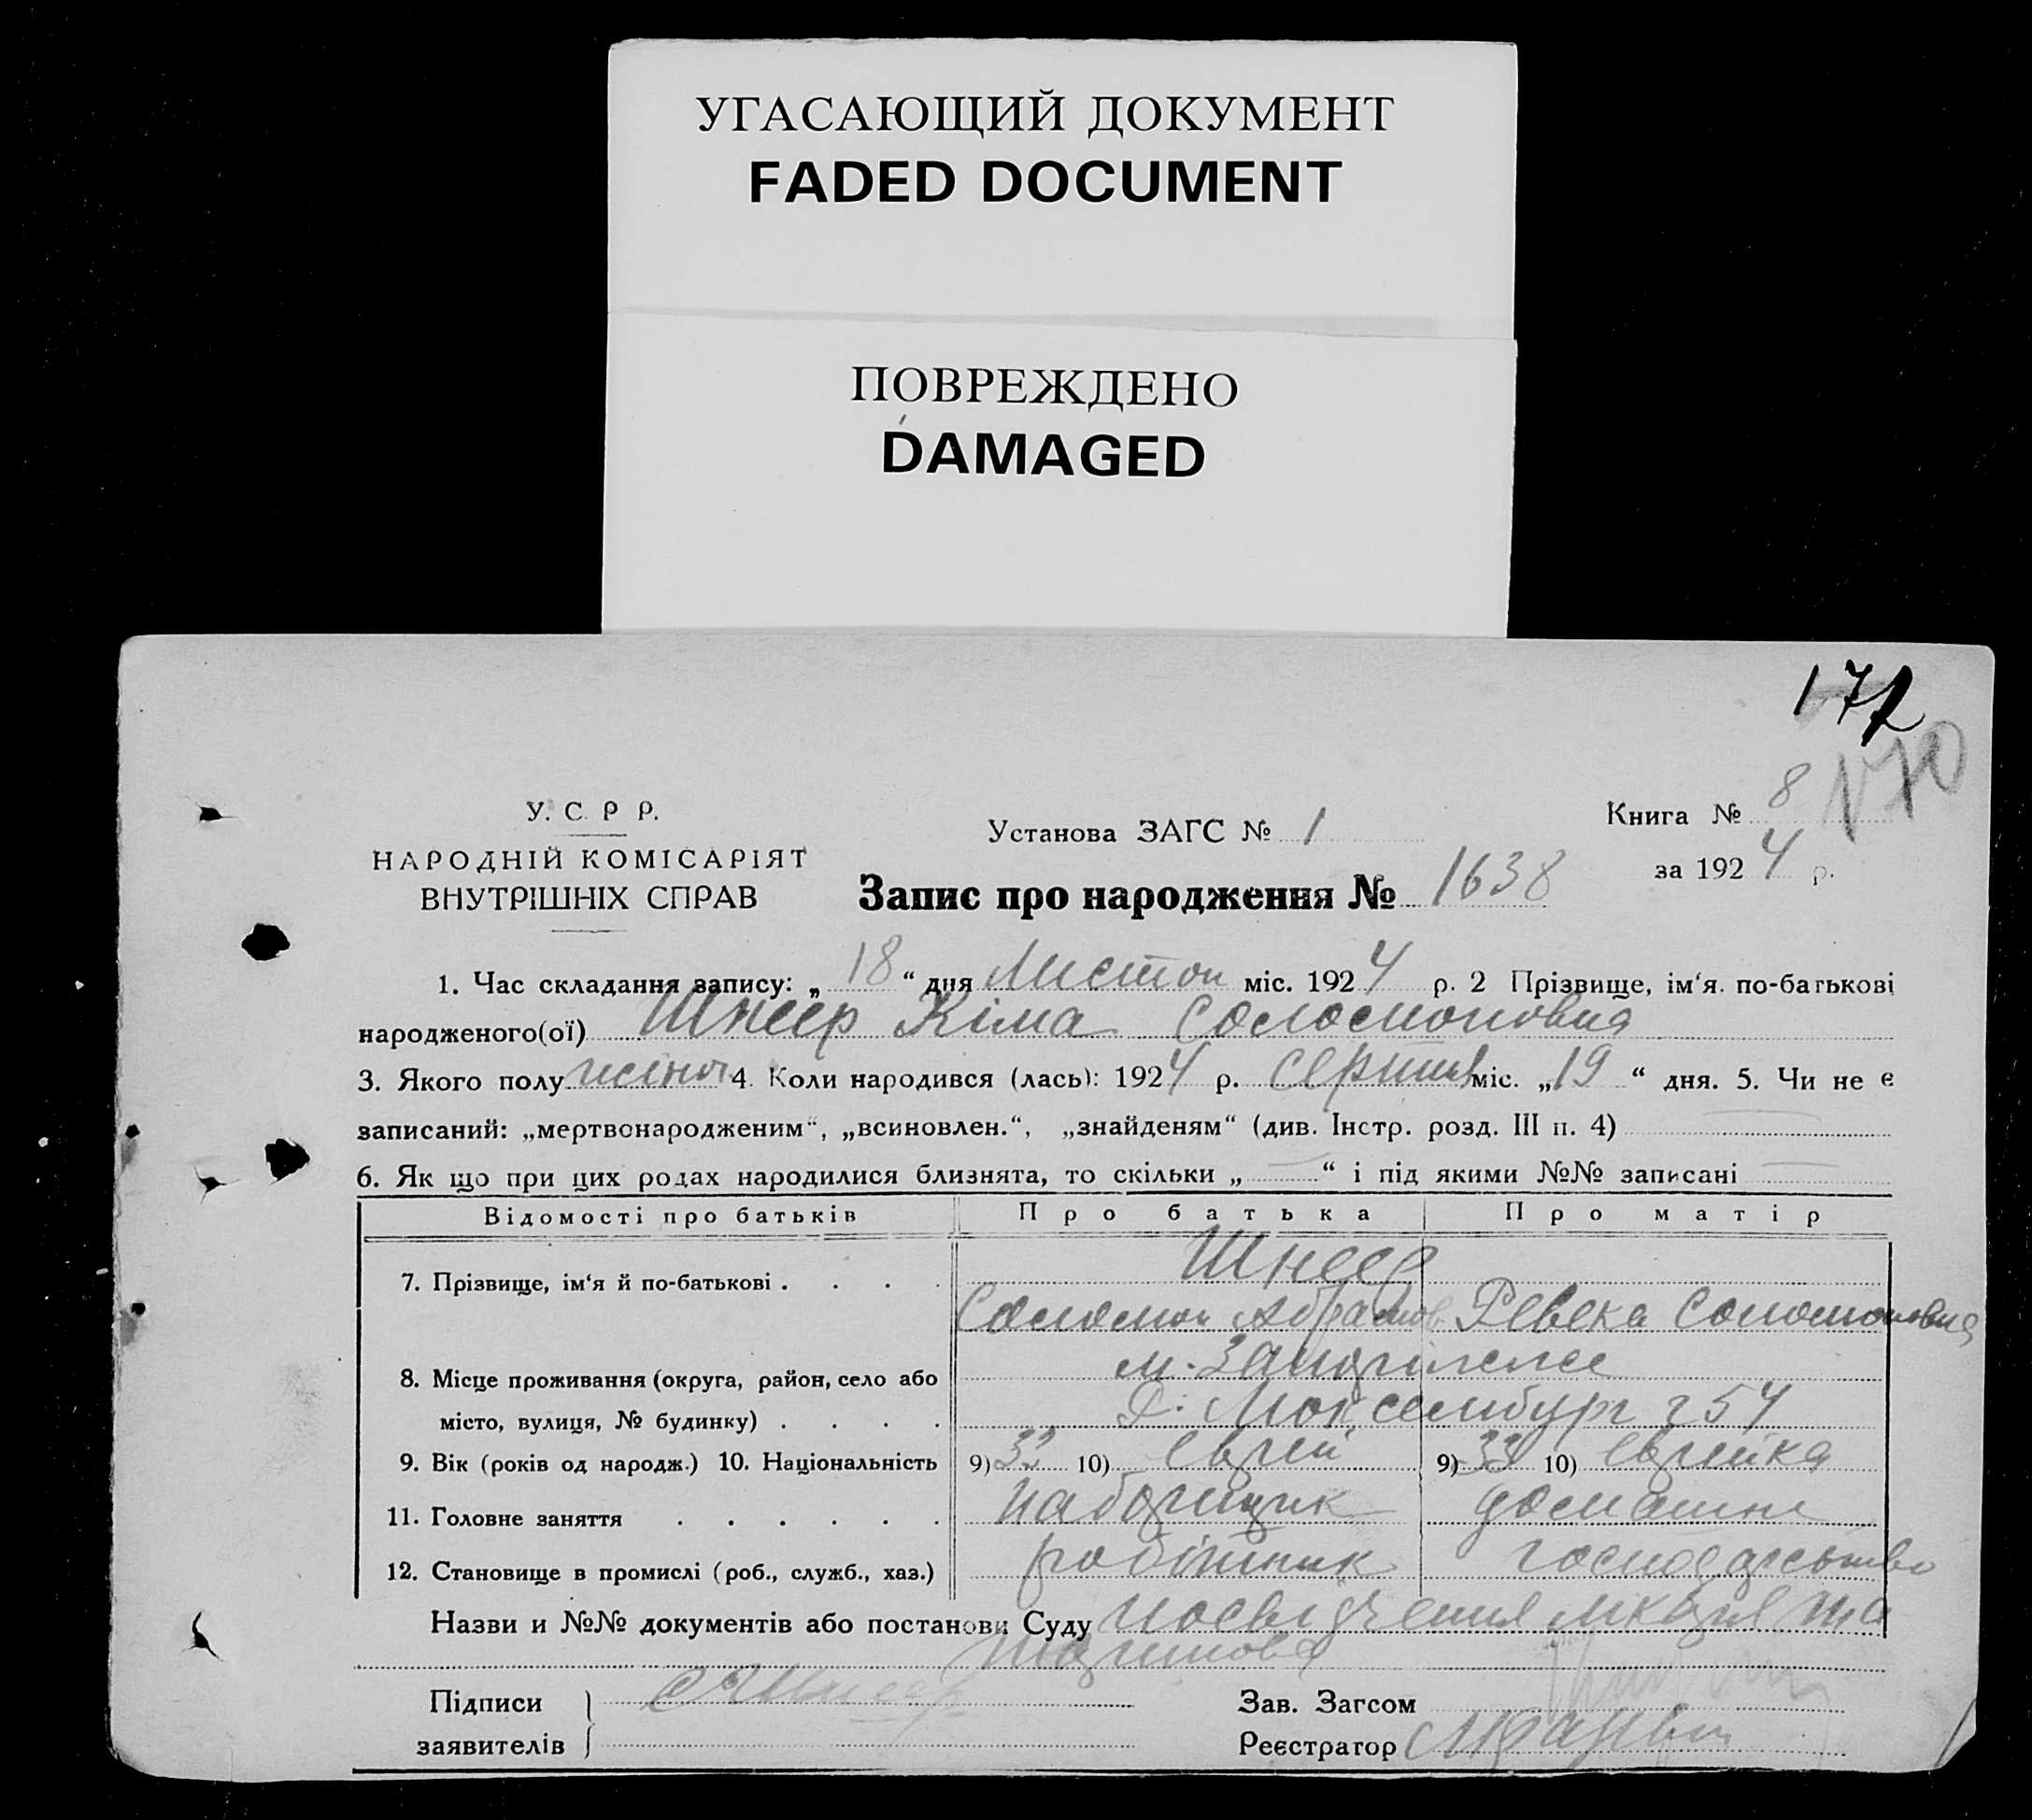 УГАСАЮЩИЙ ДОКУМЕНТ
FADED DOCUMENT
ПОВРЕЖДЕНО
DAMAGED
172
170
У. С. Р Р.
НАРОДНІЙ КОМІСАРІЯТ
ВНУТРІШНІХ СПРАВ
Установа ЗАГС № 1
Книга № 8
за 1924 р.
Запис про народження № 1638
1. Час складання запису: „ 18 “ дня Листоп міс. 1924 р. 2 Прізвище, ім‘я. по-батькові
народженого(ої) Шнеер Кіма Соломоновна
3. Якого полу жіноч 4. Коли народився (лась): 1924 р. серпня міс. „19 “ дня. 5. Чи не є
записаний: „мертвонародженим“, „всиновлен.“, „знайденям“ (див. Інстр. розд. III п. 4)
6. Як що при цих родах народилися близнята, то скільки „ — “ і під якими №№ записані —
Відомості про батьків Про батька Про матір
7. Прізвище, ім‘я й по-батькові . . . . Шнеер
Соломон Абрамов Ревека Соломоновна
8. Місце проживання (округа, район, село або м. Запоріжже
місто, вулиця, № будинку) . . . . Р. Люксембург 254
9. Вік (років од народж.) 10. Національність 9) 32 10) Еврей 9) 33 10) Еврейка
11. Головне заняття . . . . . . наборщик домашне
12. Становище в промислі (роб., служб., хаз.) робітник господарство
Назви и №№ документів або постанови Суду посвідчення
Підписи
заявителів
С Шнеер
Зав. Загсом
Реєстратор